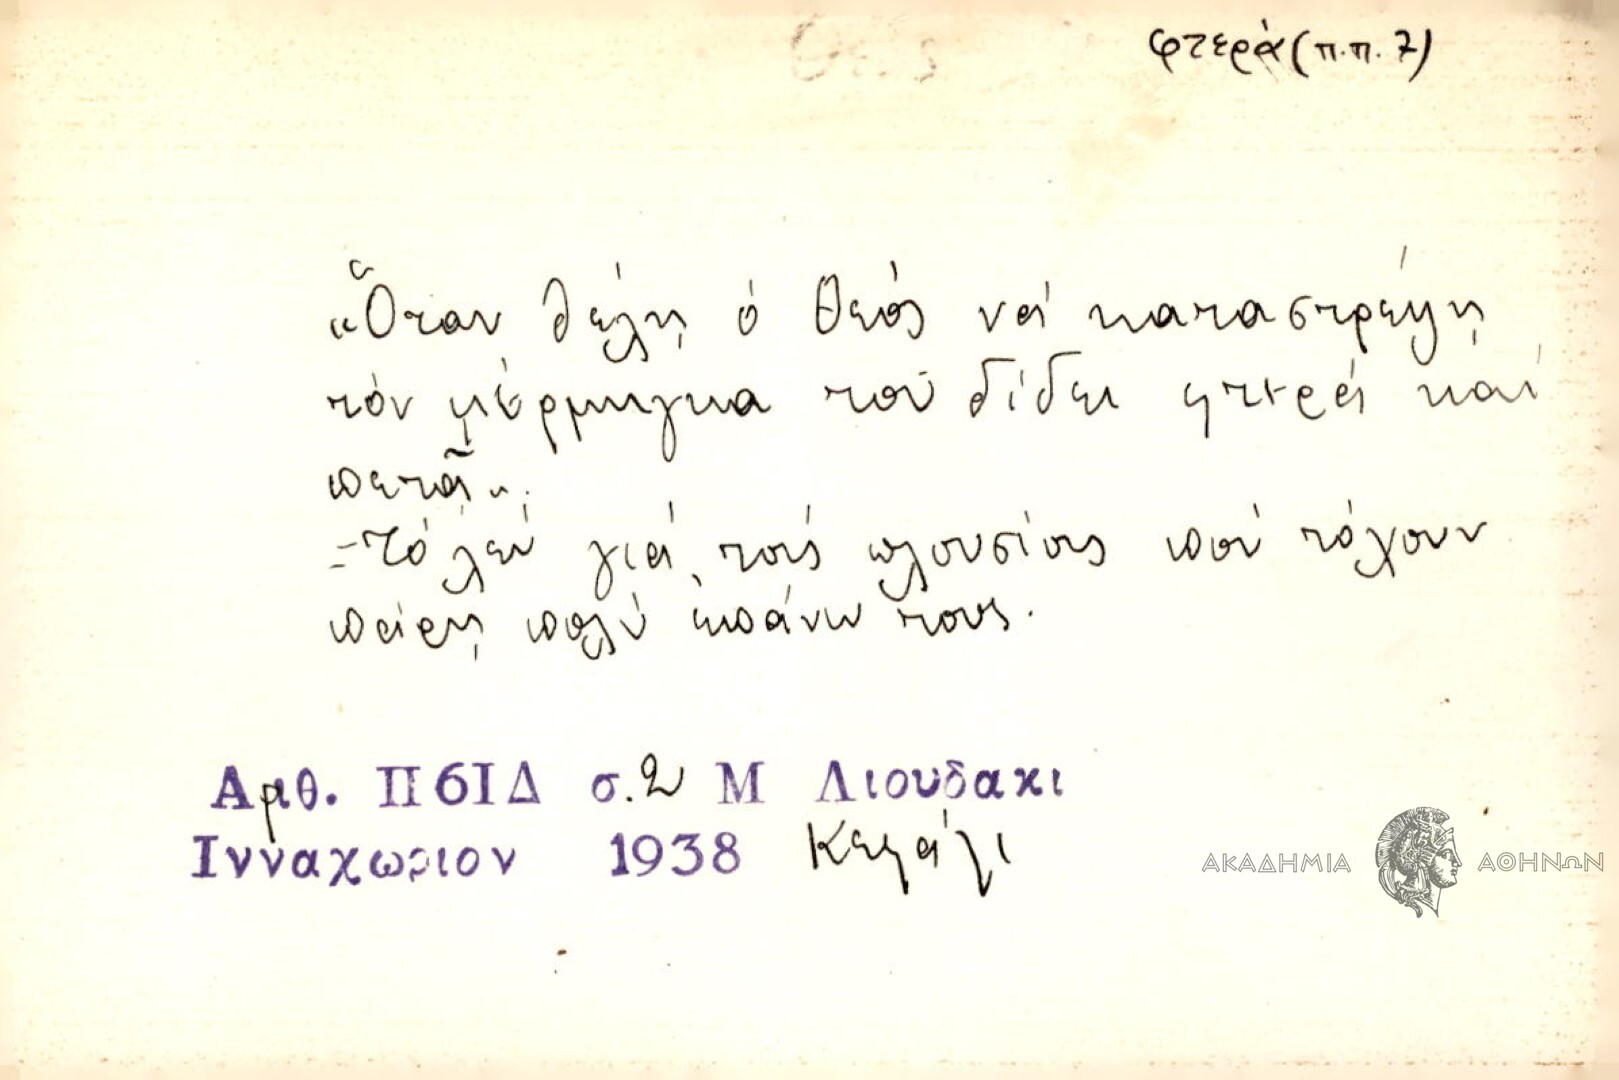 φτερά (π.π. 7)
«Ὅταν θέλη ὁ θεός νά καταστρέψη
τόν μέρμηγκα τοῦ δίδει φτερά καί
πετᾶ».
=Τό λέν γιά τούς πλουσίους πού τόχουν
πάρη πολύ ἐπάνω τους.
Αριθ. Π6ΙΔ σ. 2 Μ Λιουδακι
Ινναχωριον 1938 Κεφάλι
ΑΚΑΔΗΜΙΑ ΑΘΗΝΩΝ